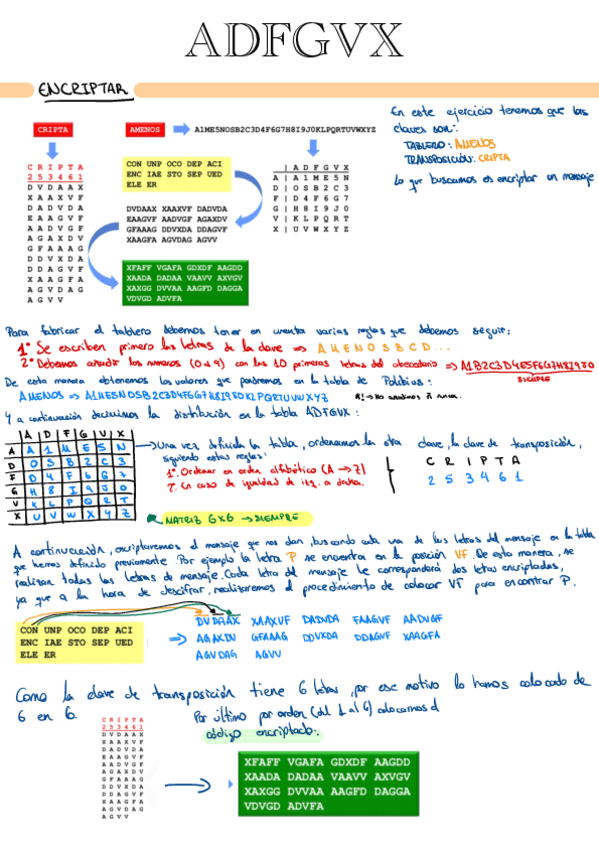 ADFGVX
ENCRIPTAR
CRIPTA
AMENOS
A1ME5NOSB2C3D4F6G7H8I9J0KLPQRTUVWXYZ
En este ejercicio tenemos que las
claves son:
TABLERO: AMENOS
TRANSPOSICIÓN: CRIPTA
Lo que buscamos es encriptar un mensaje
C R I P T A
2 5 3 4 6 1
D V D A A X
X A A X V F
D A D V D A
E A A G V F
A A D V G F
A G A X D V
G F A A A G
D D V X D A
D D A G V F
X A A G F A
A G V D A G
A G V V
CON UNP OCO DEP ACI
ENC IAE STO SEP UED
ELE ER
| A D F G V X
A | A 1 M E 5 N
D | O S B 2 C 3
F | D 4 F 6 G 7
G | H 8 I 9 J 0
V | K L P Q R T
X | U V W X Y Z
DVDAAX XAAXVF DADVDA
EAAGVF AADVGF AGAXDV
GFAAAG DDVXDA DDAGVF
XAAGFA AGVDAG AGVV
XFAFF VGAFA GDXDF AAGDD
XAADA DADAA VAAVV AXVGV
XAXGG DVVAA AAGFD DAGGA
VDVGD ADVFA
Para fabricar el tablero debemos tener en cuenta varias reglas que debemos seguir:
1º Se escriben primero las letras de la clave => A M E N O S B C D ...
2º Debemos añadir los numeros (0 a 9) con las 10 primeras letras del abecedario => A1B2C3D4E5F6G7H8I9J0
SIEMPRE
De esta manera obtenemos los valores que pondremos en la tabla de Polibius:
AMENOS => A1ME5NOSB2C3D4F6G7H8I9J0KLPQRTUVWXYZ
Y a continuación decimos la distribución en la tabla ADFGVX:
A D F G V X
A A 1 M E 5 N
D O S B 2 C 3
F D 4 F 6 G 7
G H 8 I 9 J 0
V K L P Q R T
X U V W X Y Z
Una vez definida la tabla, ordenamos la otra clave, la clave de transposición,
siguiendo estas reglas:
1º. Ordenar en orden alfabético (A → Z)
2º. En caso de igualdad de izq. a dcha.
C R I P T A
2 5 3 4 6 1
MATRIZ 6x6 → SIEMPRE
A continuación, encriptaremos el mensaje que nos dan, buscando cada una de las letras del mensaje en la tabla
que hemos definido previamente. Por ejemplo la letra P se encuentra en la posición VF. De esta manera, se
realizan todas las letras de mensaje. Cada letra del mensaje le corresponderá dos letras encriptadas,
ya que a la hora de descifrar, realizaremos el procedimiento de colocar VF para encontrar P.
CON UNP OCO DEP ACI
ENC IAE STO SEP UED
ELE ER
DVDAAX XAAXVF DADVDA FAAGVF AADVGF
AGAXDV GFAAAG DDVXDA DDAGVF XAAGFA
AGVDAG AGVV
Como la clave de transposición tiene 6 letras, por ese motivo lo hemos colocado de
6 en 6.
Por último por orden (del 1 al 6) colocamos el
código encriptado.
C R I P T A
2 5 3 4 6 1
D V D A A X
X A A X V F
D A D V D A
E A A G V F
A A D V G F
A G A X D V
G F A A A G
D D V X D A
D D A G V F
X A A G F A
A G V D A G
A G V V
XFAFF VGAFA GDXDF AAGDD
XAADA DADAA VAAVV AXVGV
XAXGG DVVAA AAGFD DAGGA
VDVGD ADVFA